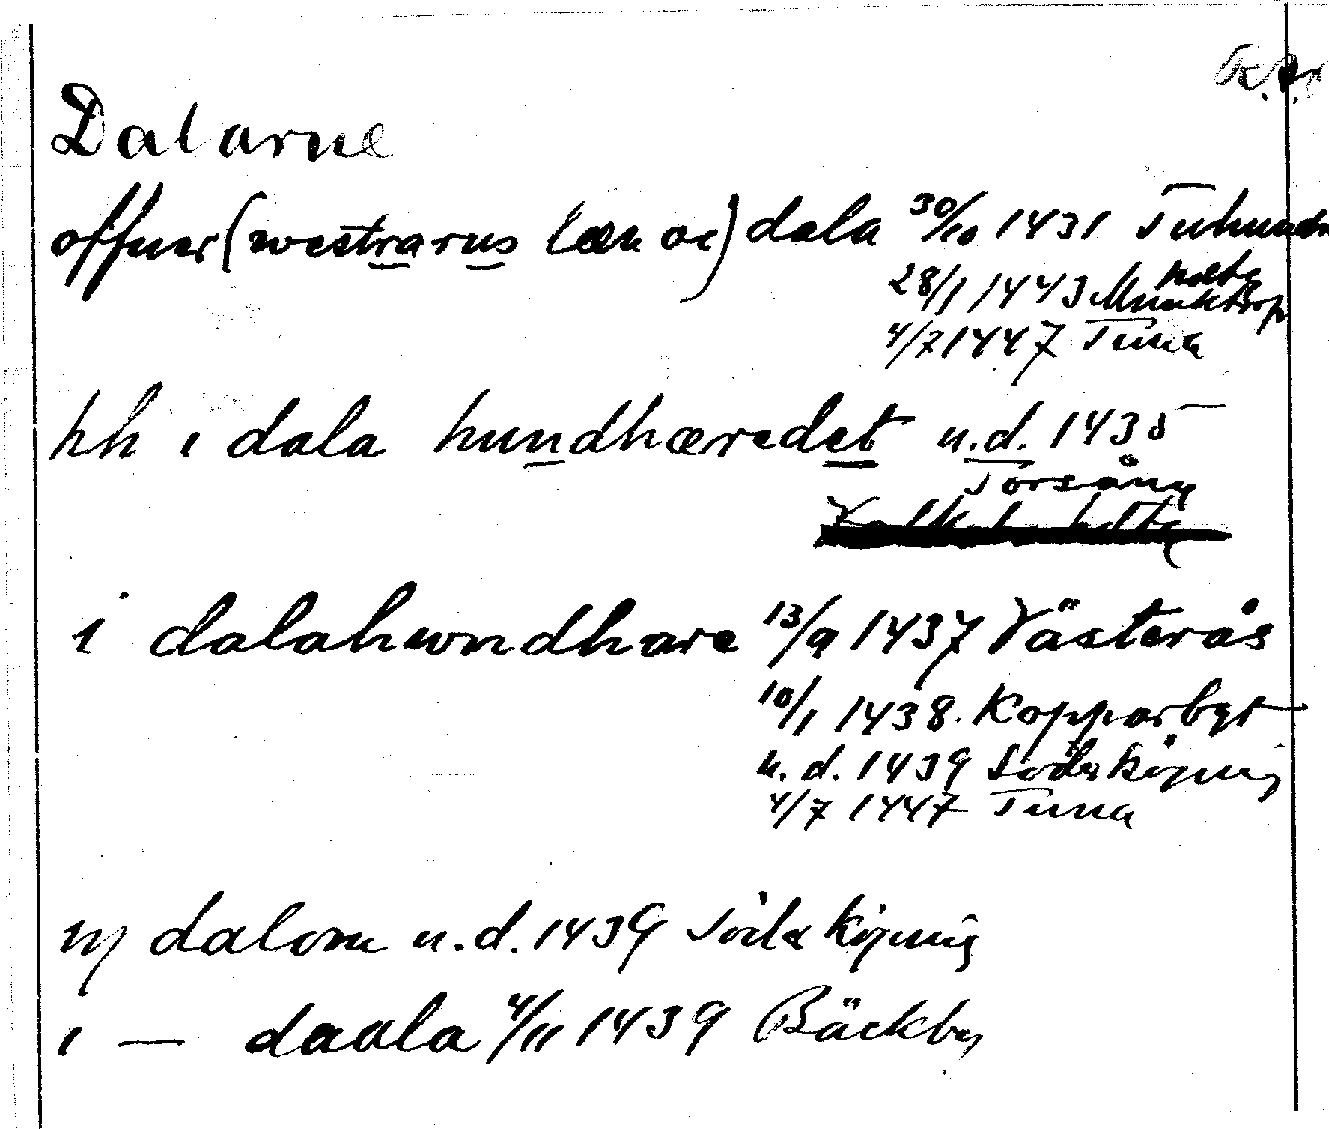 Dalarne
offuer (westrarus læn oc) dala 30/10 1431 Tuhundra
28/1 1443 Munktorp
4/7 1447 Tuna
hh i dala hundhæredet u.d. 1435
Torsång
i dalahwndhare 13/9 1437 Västerås
10/1 1438. Kopparbgt
u. d. 1439 Söderköping
4/7 1447 Tuna
ij dalom u.d. 1439 Söderköping
i — daala 4/11 1439 Bäckby